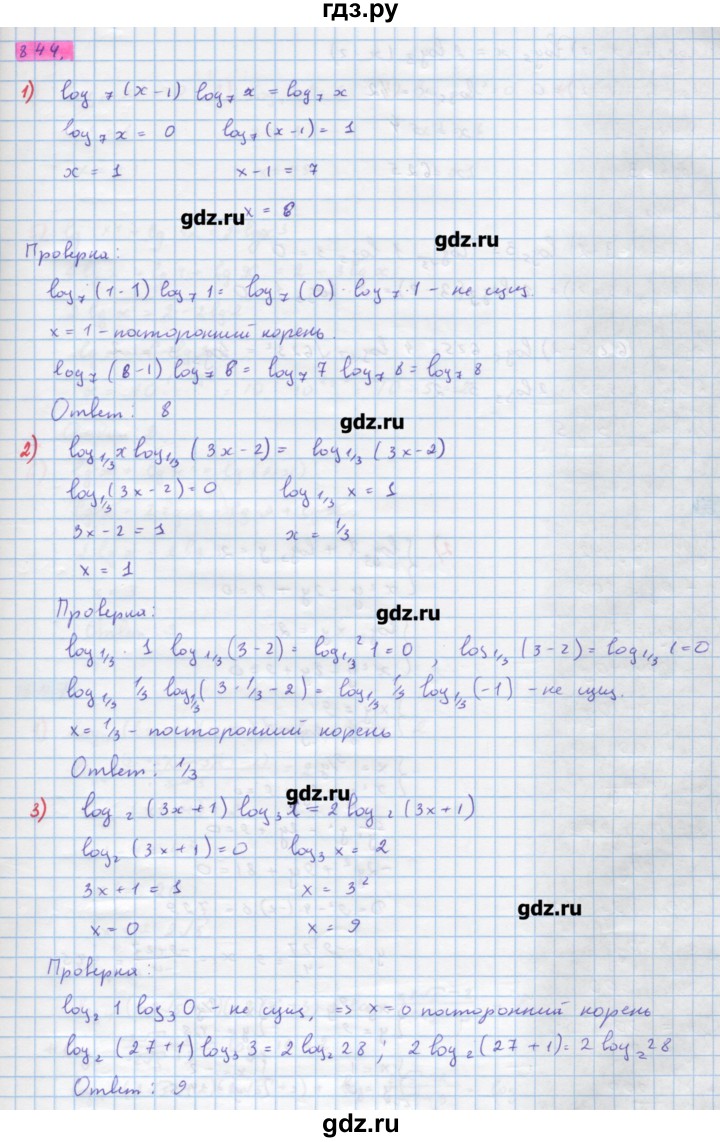 гдз.ру
844.
1) log₇(x-1) log₇x = log₇x
log₇x = 0 log₇(x-1) = 1
x = 1 x-1 = 7
gdz.ru x = 8
gdz.ru
Проверка:
log₇(1-1) log₇1 = log₇(0)·log₇·1 - не сущ.
x = 1 - посторонний корень.
log₇(8-1) log₇8 = log₇7 log₇8 = log₇8
Ответ: 8
gdz.ru
2) log₁/₃x log₁/₃(3x-2) = log₁/₃(3x-2)
log₁/₃(3x-2) = 0 log₁/₃x = 1
3x-2 = 1 x = 1/3
x = 1
Проверка:
gdz.ru
log₁/₃·1 log₁/₃(3-2) = log₁/₃²1 = 0 ; log₁/₃(3-2) = log₁/₃1 = 0
log₁/₃ 1/3 log₁/₃(3·1/3-2) = log₁/₃ 1/3 log₁/₃(-1) - не сущ.
x = 1/3 - посторонний корень
Ответ: 1/3
gdz.ru
3) log₂(3x+1) log₃x = 2log₂(3x+1)
log₂(3x+1) = 0 log₃x = 2
3x+1 = 1 x = 3²
gdz.ru
x = 0 x = 9
Проверка:
log₂1 log₃0 - не сущ, => x = 0 посторонний корень
log₂(27+1) log₃3 = 2log₂28 ; 2log₂(27+1) = 2log₂28
Ответ: 9
gdz.ru